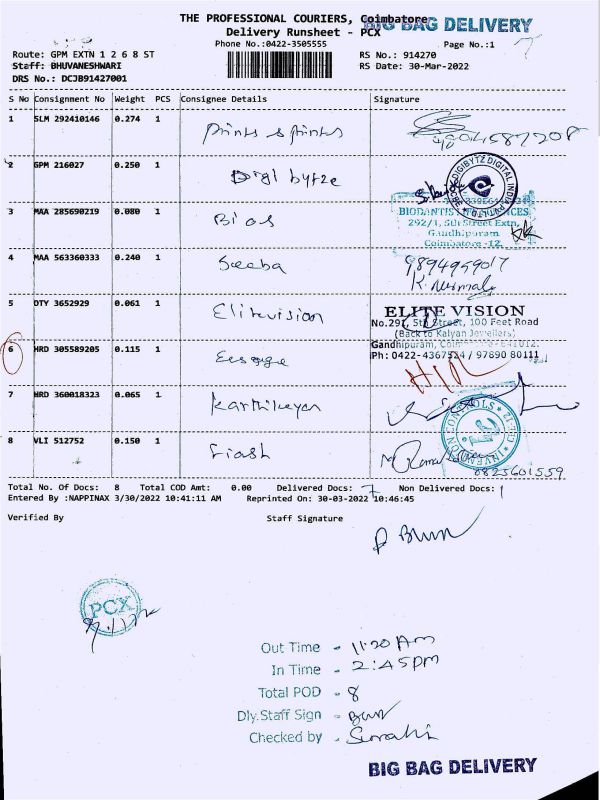 THE PROFESSIONAL COURIERS, Coimbatore
BIG BAG DELIVERY
Delivery Runsheet - PCX
Phone No.:0422-3505555
Page No.:1
Route: GPM EXTN 1 2 6 8 ST
RS No.: 914270
Staff: BHUVANESHWARI
RS Date: 30-Mar-2022
DRS No.: DCJB91427001
S No Consignment No Weight PCS Consignee Details Signature
1 SLM 292410146 0.274 1 prints & prints
2 GPM 216027 0.250 1 Digi bytze
DIGIBYTZ DIGITAL INDIA
3 MAA 285690219 0.080 1 Bios
292/1, 5th Street Extn,
Gandhipuram
Coimbatore -12.
4 MAA 563360333 0.240 1 Seeba 9894959017
K. Nirmala
5 DTY 3652929 0.061 1 Elitevision
ELITE VISION
No.291, 5th Street, 100 Feet Road
(Back to Kalyan Jewellers)
Gandhipuram, Coimbatore-641012.
Ph: 0422-4367524 / 97890 80111
6 HRD 305589205 0.115 1
7 HRD 360018323 0.065 1 Karthikeyan
INVENTION CONTROLS CBE-12
8 VLI 512752 0.150 1 Flash
9825601559
Total No. Of Docs: 8 Total COD Amt: 0.00 Delivered Docs: 7 Non Delivered Docs: 1
Entered By :NAPPINAX 3/30/2022 10:41:11 AM Reprinted On: 30-03-2022 10:46:45
Verified By Staff Signature
PCX
Out Time - 11:20 Am
In Time - 2:45pm
Total POD - 8
Dly.Staff Sign -
Checked by -
BIG BAG DELIVERY